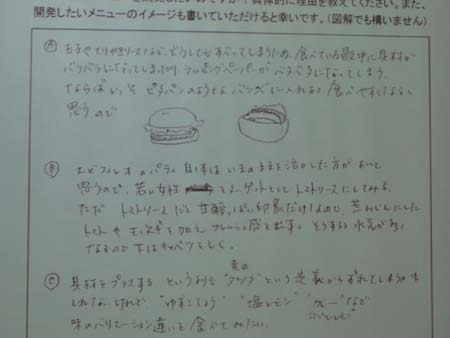 開発したいメニューのイメージも書いていただけると幸いです。(図解でも構いません)
Ⓐ 玉子やてりやきソースなど、どうしてもすべってしまうため、食べている最中に具材が
バラバラになってしまったり ラッピングペーパーがベタベタになってしまう
ならばいっそ ピタパンのような バンズに入れると 食べやすくなると
思うので
Ⓑ エビフィレオのパティ自体はいまのままを活かした方がよいと
思うので、若い女性 ターゲットとしてトマトソースにしてみる。
ただ トマトソースだと甘酸っぱい印象だけなので、荒みじんにした
トマトや玉ネギを加え、フレッシュ感を出す。そうすると水気が多く
なるので下はキャベツをしく。
Ⓒ 具材をプラスするというよりも 真の"アジア"という定義からずれてしまうかも
しれないけれど "ゆずこしょう" "塩レモン" "カレー"など
味のバリエーション違いを食べてみたい。